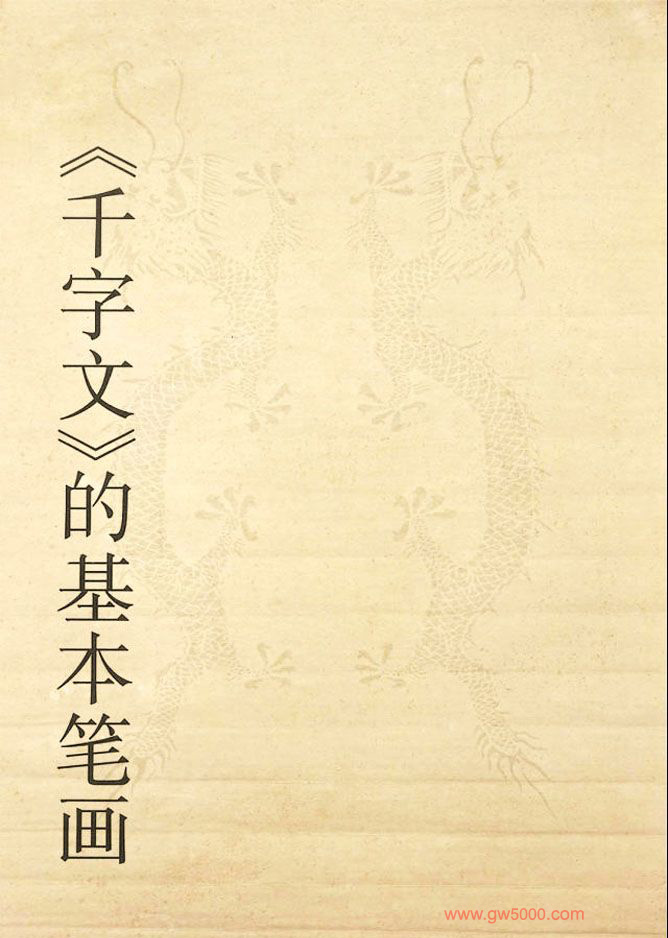 《千字文》的基本笔画
www.gw5000.com